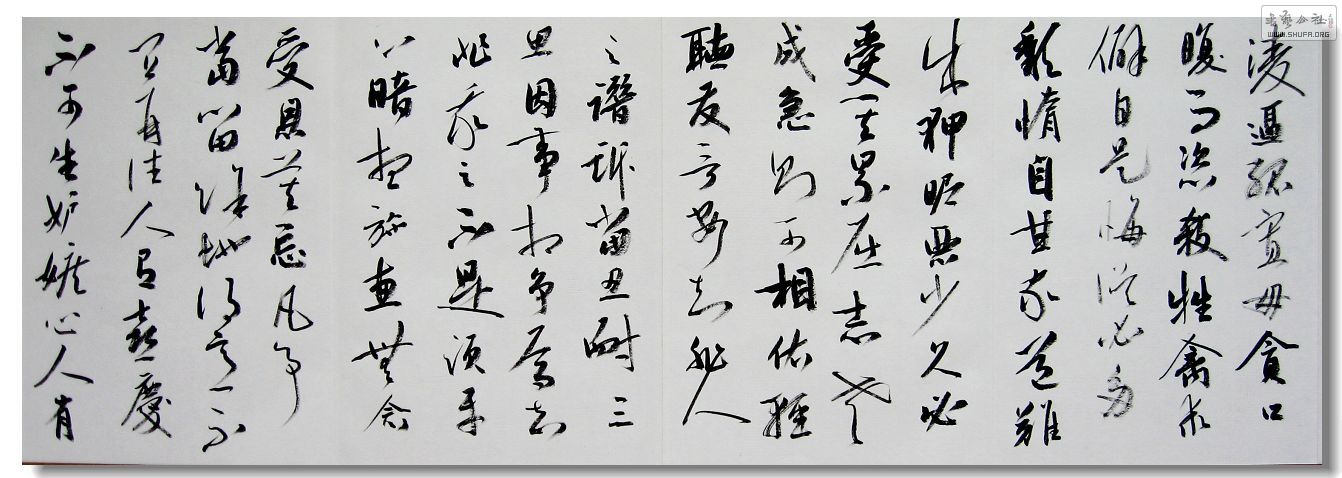 凌逼孤寡毋貪口
腹而恣殺牲禽乖
僻自是悔誤必多
頹惰自甘家道難
成狎昵惡少久必
受其累屈志老
成急則可相依輕
聽發言安知非人
之譖訴當忍耐三
思因事相爭焉知
非我之不是須平
心暗想施惠無念
受恩莫忘凡事
當留餘地得意不
宜再往人有喜慶
不可生妒嫉心人有
书艺公社
WWW.SHUFA.ORG